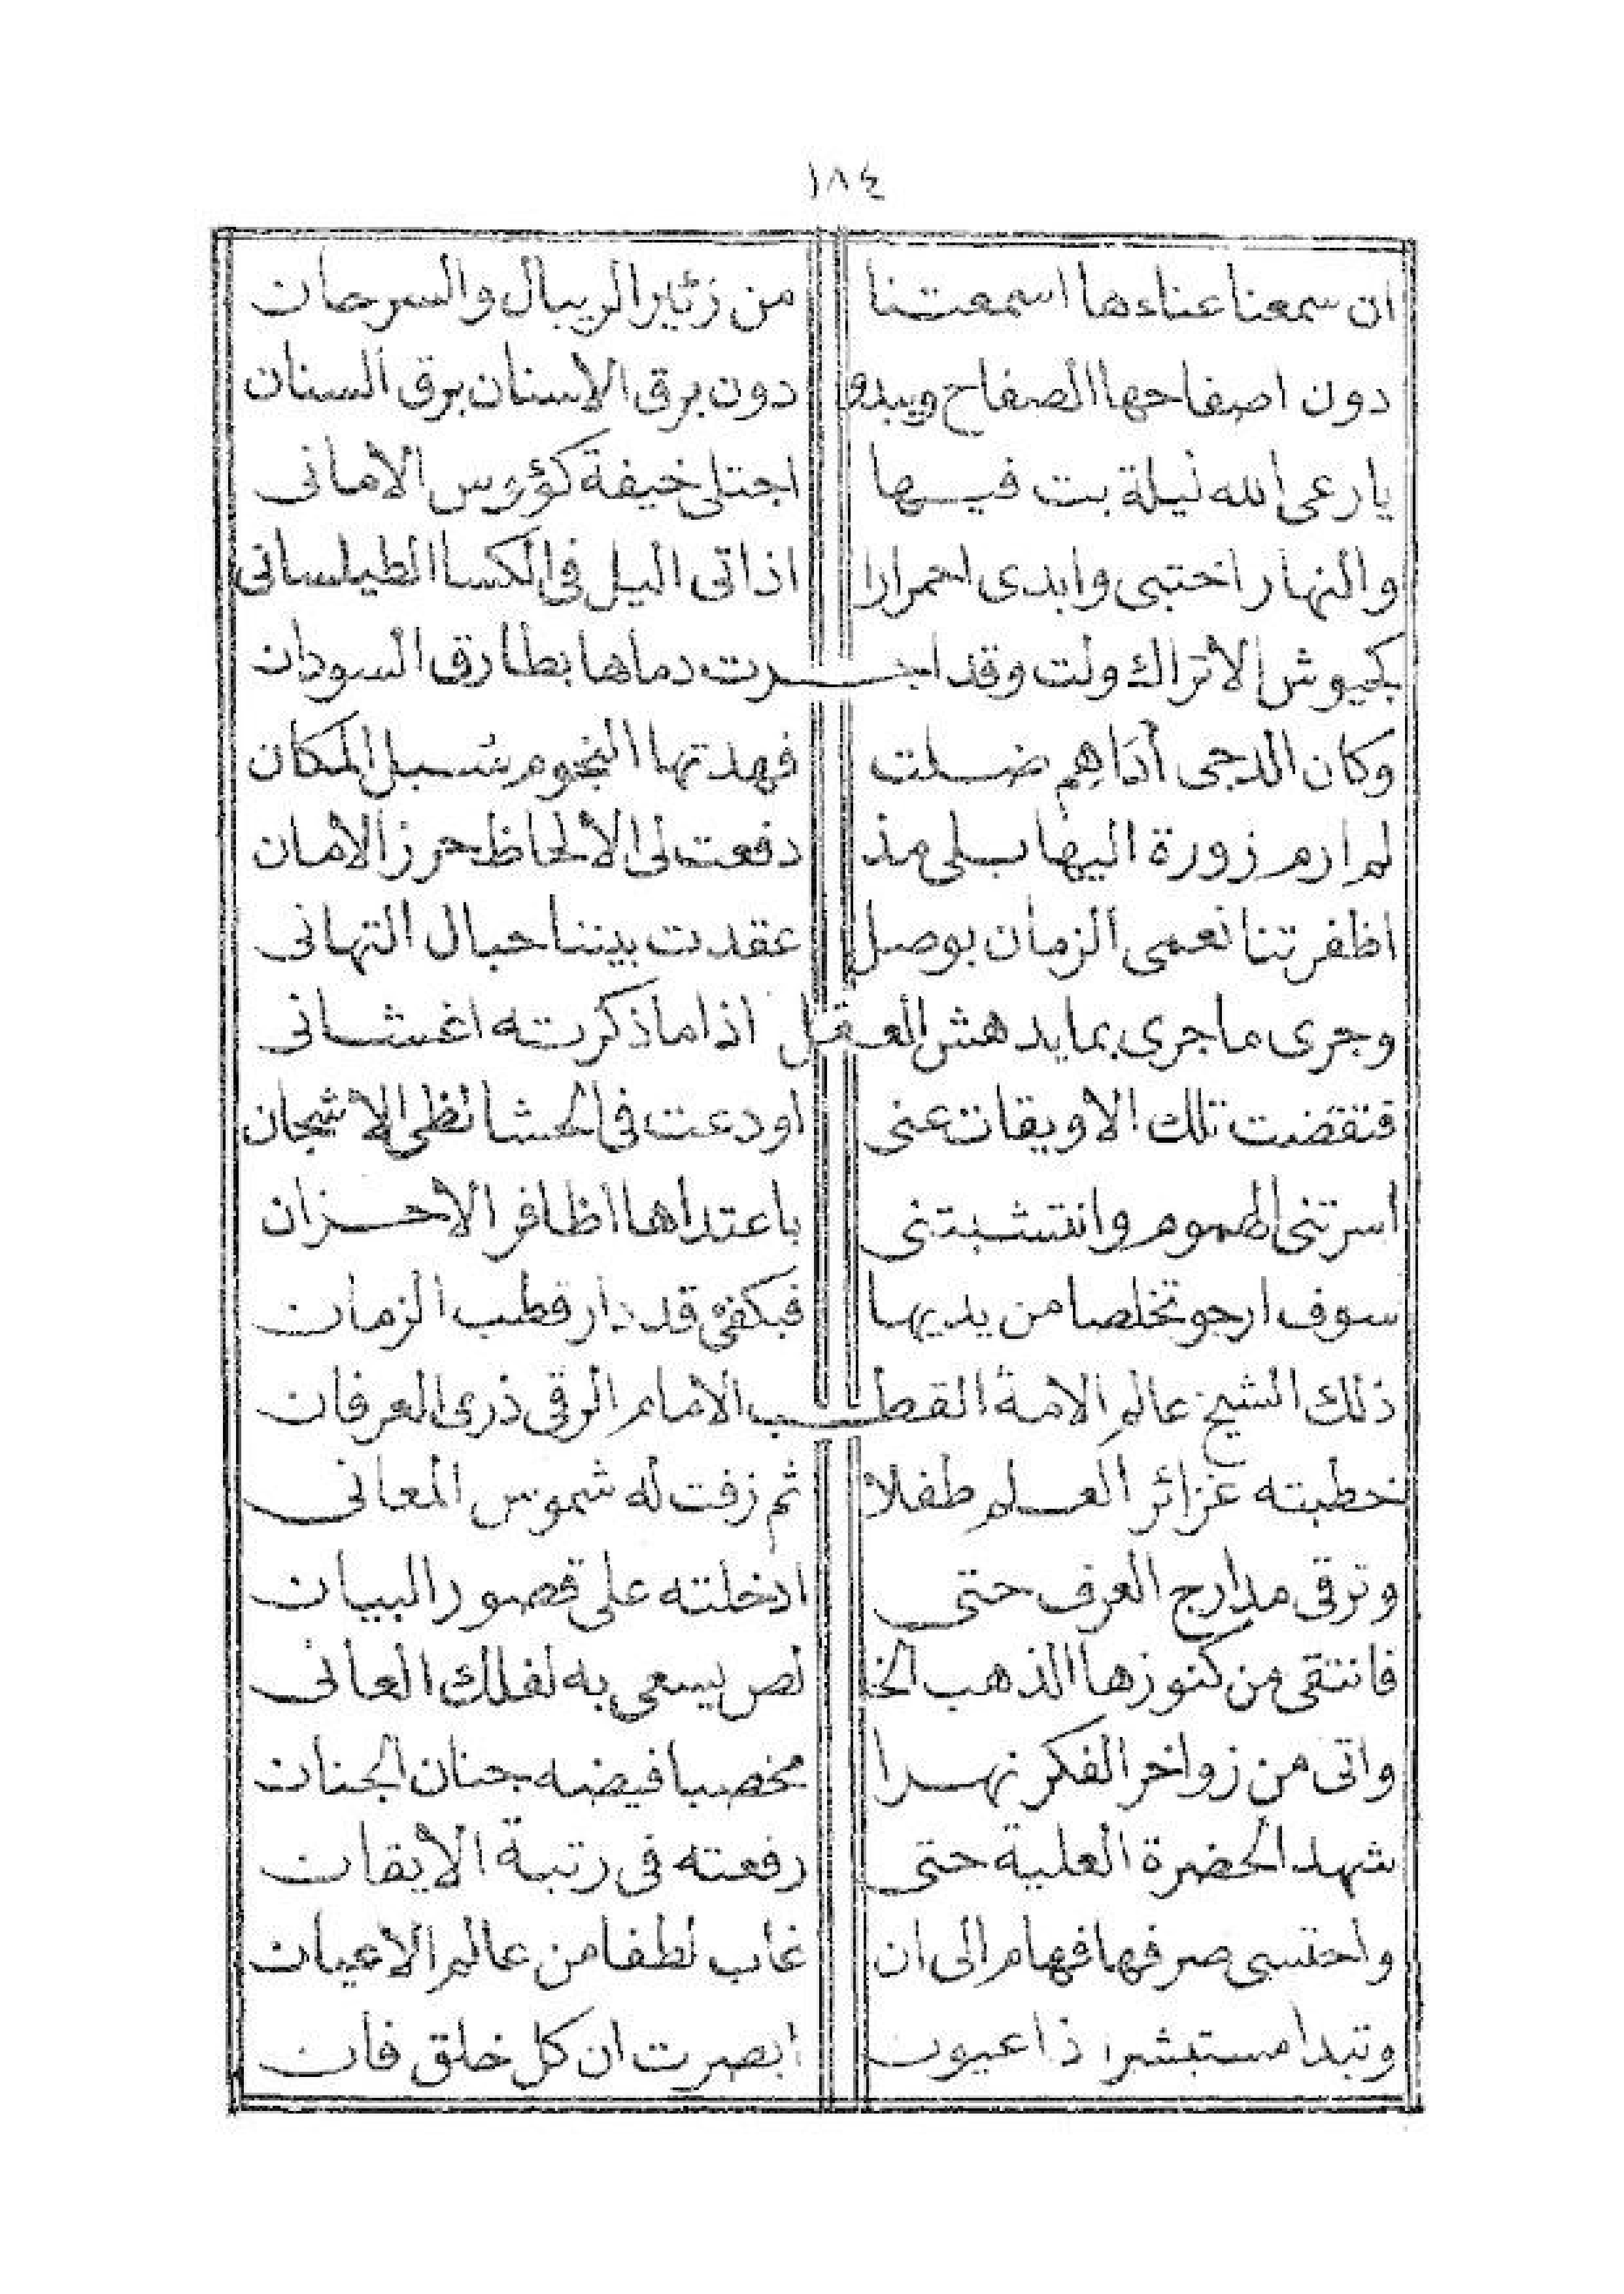 ١٨٤
ان سمعنا عناءها اسمعتنا من زئير الريبال والسرحان
دون اصفاحها الصفاح ويبدو دون برق الاسنان برق السنان
يارعى الله ليلة بت فيها اجتلى خيفة كؤوس الامانى
والنهار اختبى وابدى احمرارا اذ اتى اليل فى الكسا الطيلسانى
كجيوش الأتراك ولت وقد اجرت دماها بطارق السودان
وكان الدجى أداهم ضلت فهدتها النجوم سبل المكان
لم ارم زورة اليها بلى مذ دفعت لى الألحاظ حرز الأمان
اظفرتنا نعمى الزمان بوصل عقدت بيننا حبال التهانى
وجرى ماجرى بما يدهش العقل اذا ماذكرته اغشانى
فتقضت تلك الاويقات عنى اودعت فى الحشا لظى الاشجان
اسرتنى الهموم وانتشبتنى باعتداها اظافر الأحزان
سوف ارجو تخلصا من يديها فبكفئ قد دار قطب الزمان
ذلك الشيخ عالم الامة القطب الامام الرقى ذرى العرفان
خطبته غزائر العلم طفلا ثم زفت له شموس المعانى
وترقى مدارج العرف حتى ادخلته على قصور البيان
فانتقى من كنوزها الذهب الخا لص يسعى به لفلك العانى
واتى من زواخر الفكر نهرا مخصبا فيضه جنان الجنان
شهد الحضرة العلية حتى رفعته فى رتبة الايقان
واحتسى صرفها فهام الى ان غاب لطفا من عالم الاعيان
وتبدا مستبشرا ذا عيون ابصرت ان كل خلق فان